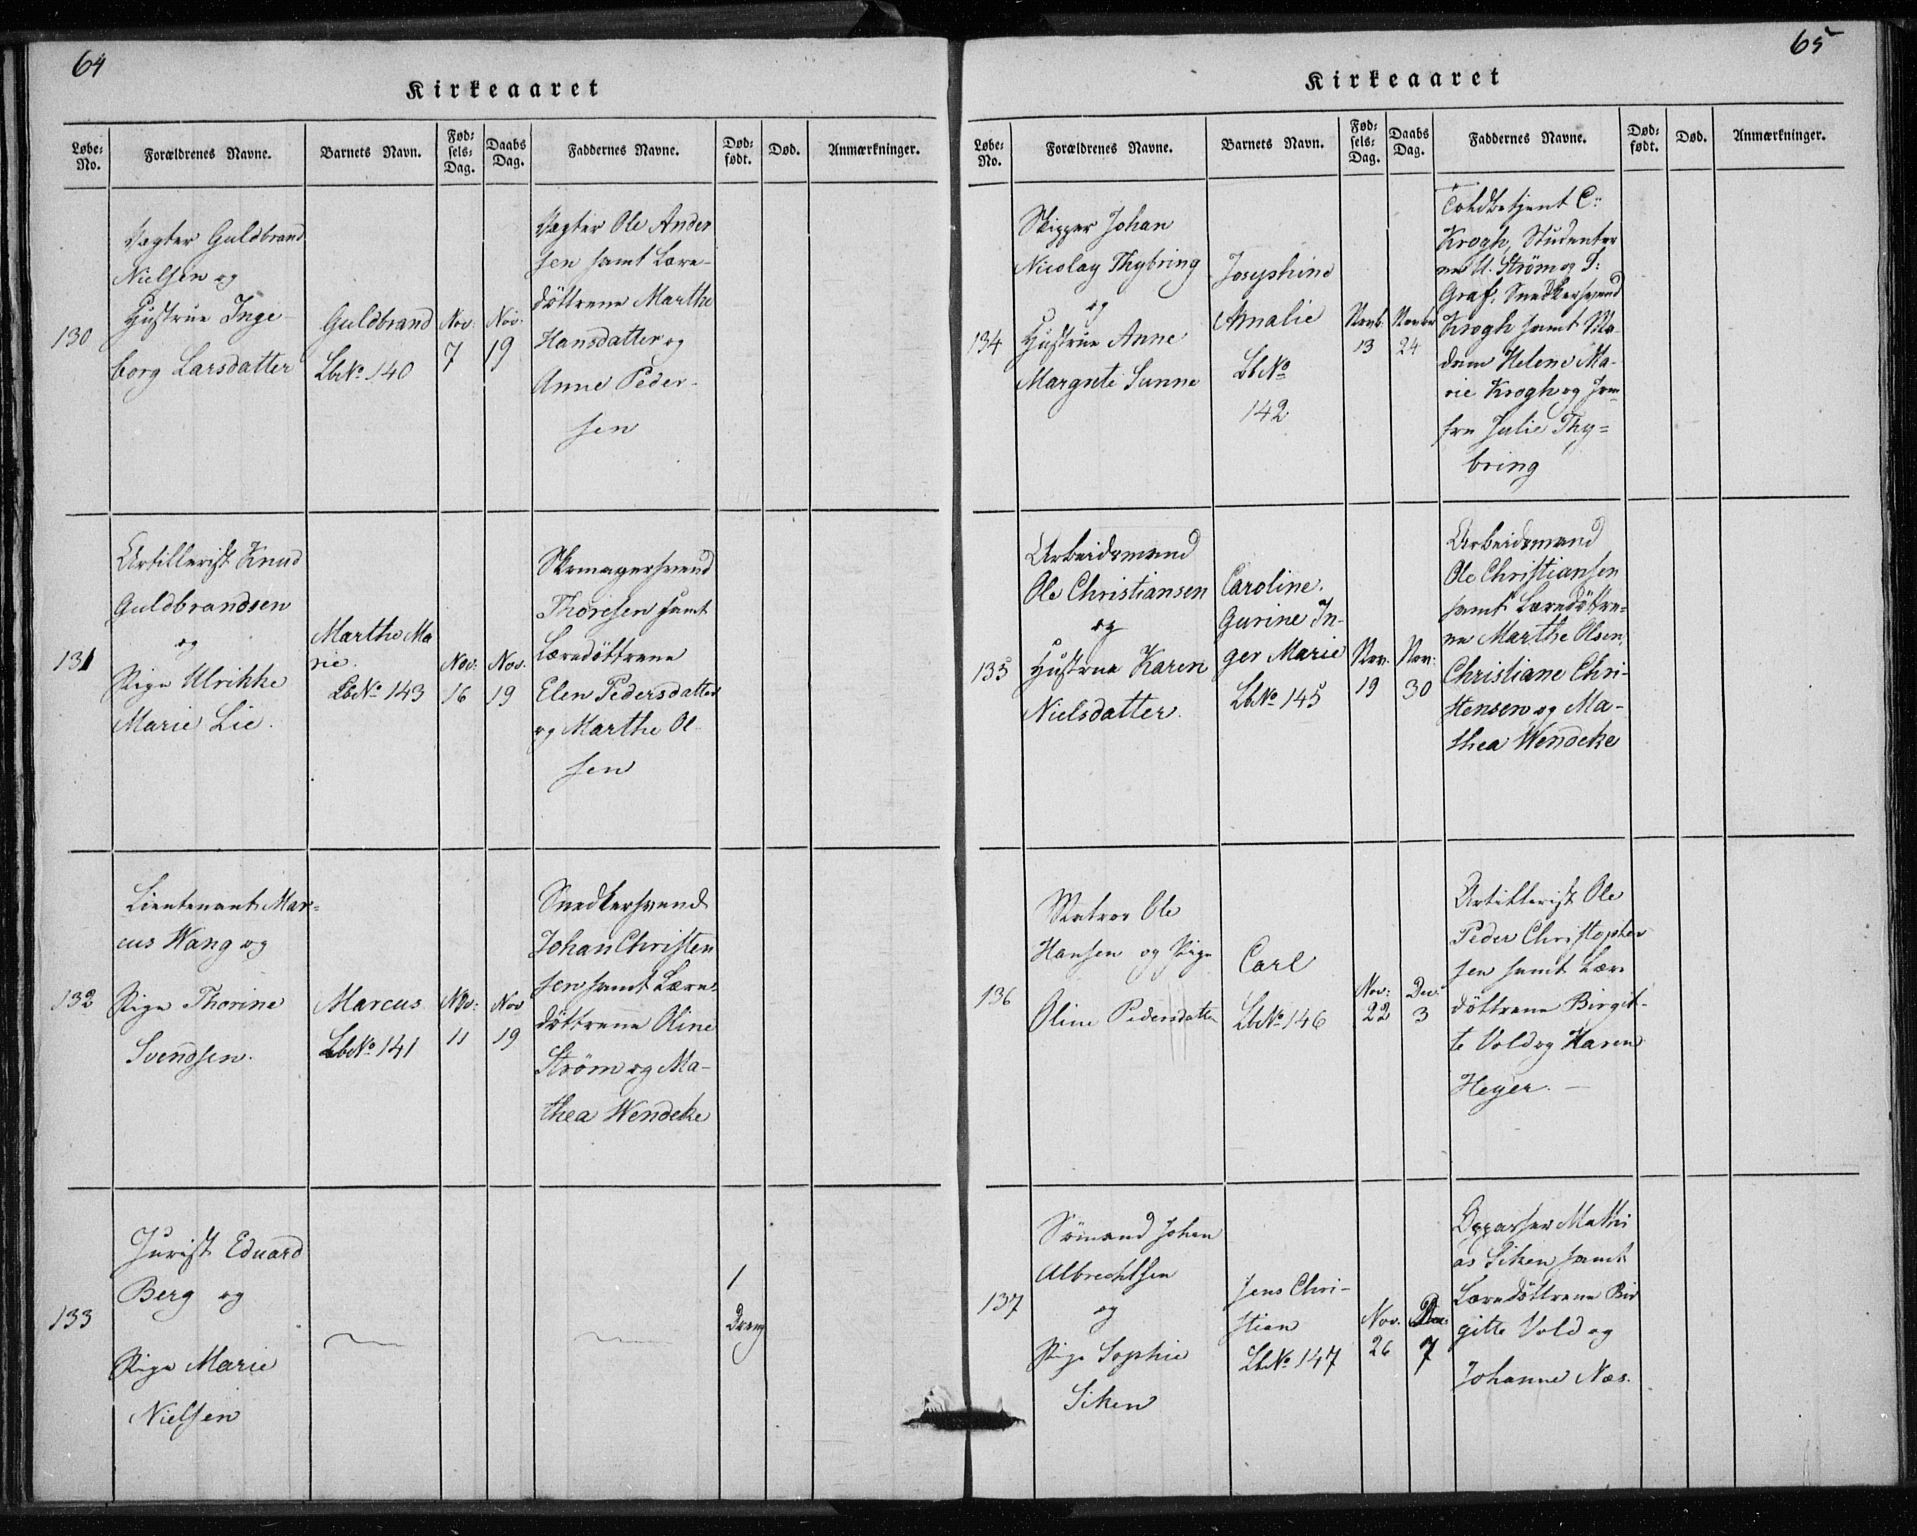 64
Kirkeaaret
Løbe-No. Forældrenes Navne. Barnets Navn. Fød-sels-Dag. Daabs Dag. Faddernes Navne. Død-født. Død. Anmærkninger.
130
Vægter Guldbrand
Nielsen og
Hustrue Inge-
borg Larsdatter
Guldbrand
Lb.No. 140
Nov.
7
Nov.
19
Vægter Ole Ander
sen samt Lære-
döttrene Marthe
Hansdatter og
Anne Peder-
sen
131
Artillerist Knud
Guldbrandsen
og
Pige Ulrikke
Marie Lie.
Marthe Ma
rie.
Lb.No. 143
Nov.
16
Nov.
19
Skomagersvend
Thoresen samt
Læredöttrene
Elen Pedersdatter
og Marthe Ol-
sen
132
Lieutenant Mar-
cus Wang og
Pige Thorine
Svendsen.
Marcus
Lb.No. 141
Nov:
11
Nov
19
Snedkersvend
Johan Christen
sen samt Lære
döttrene Oline
Strøm og Ma-
thea Wendeke
133
Jurist Eduard
Berg og
Pige Marie
Nielsen
1
Dreng
65
Kirkeaaret
Løbe-No. Forældrenes Navne. Barnets Navn. Fød-sels-Dag. Daabs Dag. Faddernes Navne. Død-født. Død. Anmærkninger.
134
Skipper Johan
Nicolay Thybring
og
Hustrue Anne
Margrete Sunne
Josephine
Amalie
Lb.No
142
Novb.
13
Novbr
24
Toldbetjent C:
Krogh, Studenter
ne U. Strøm og T:
Graf, Snedkersvend
Krogh samt Ma-
dam Helene Ma-
rie Krogh og Jom
fru Julie Thy=
bring
135
Arbeidsmand
Ole Christiansen
og
Hustrue Karen
Nielsdatter.
Caroline
Gurine In-
ger Marie
Lb.No. 145
Nov.
19
Nov:
30
Arbeidsmand
Ole Christiansen
samt Læredöttre-
ne Marthe Olsen,
Christiane Chri-
stensen og Ma-
thea Wendeke
136
Matros Ole
Hansen og Pige
Oline Pedersdatter
Carl
Lb.No. 146
Nov:
22
Dec.
3
Artillerist Ole
Peder Christopher
sen samt Lære
döttrene Birgit-
te Vold og Karen
Heyer. —
137
Sömand Johan
Albrechtsen
og
Pige Sophie
Siken
Jens Chri-
stian
Lb.No. 147
Nov.
26
Dec:
7
Oppasser Mathi
as Siken samt
Læredöttrene Bir
gitte Vold og
Johanne Næs.